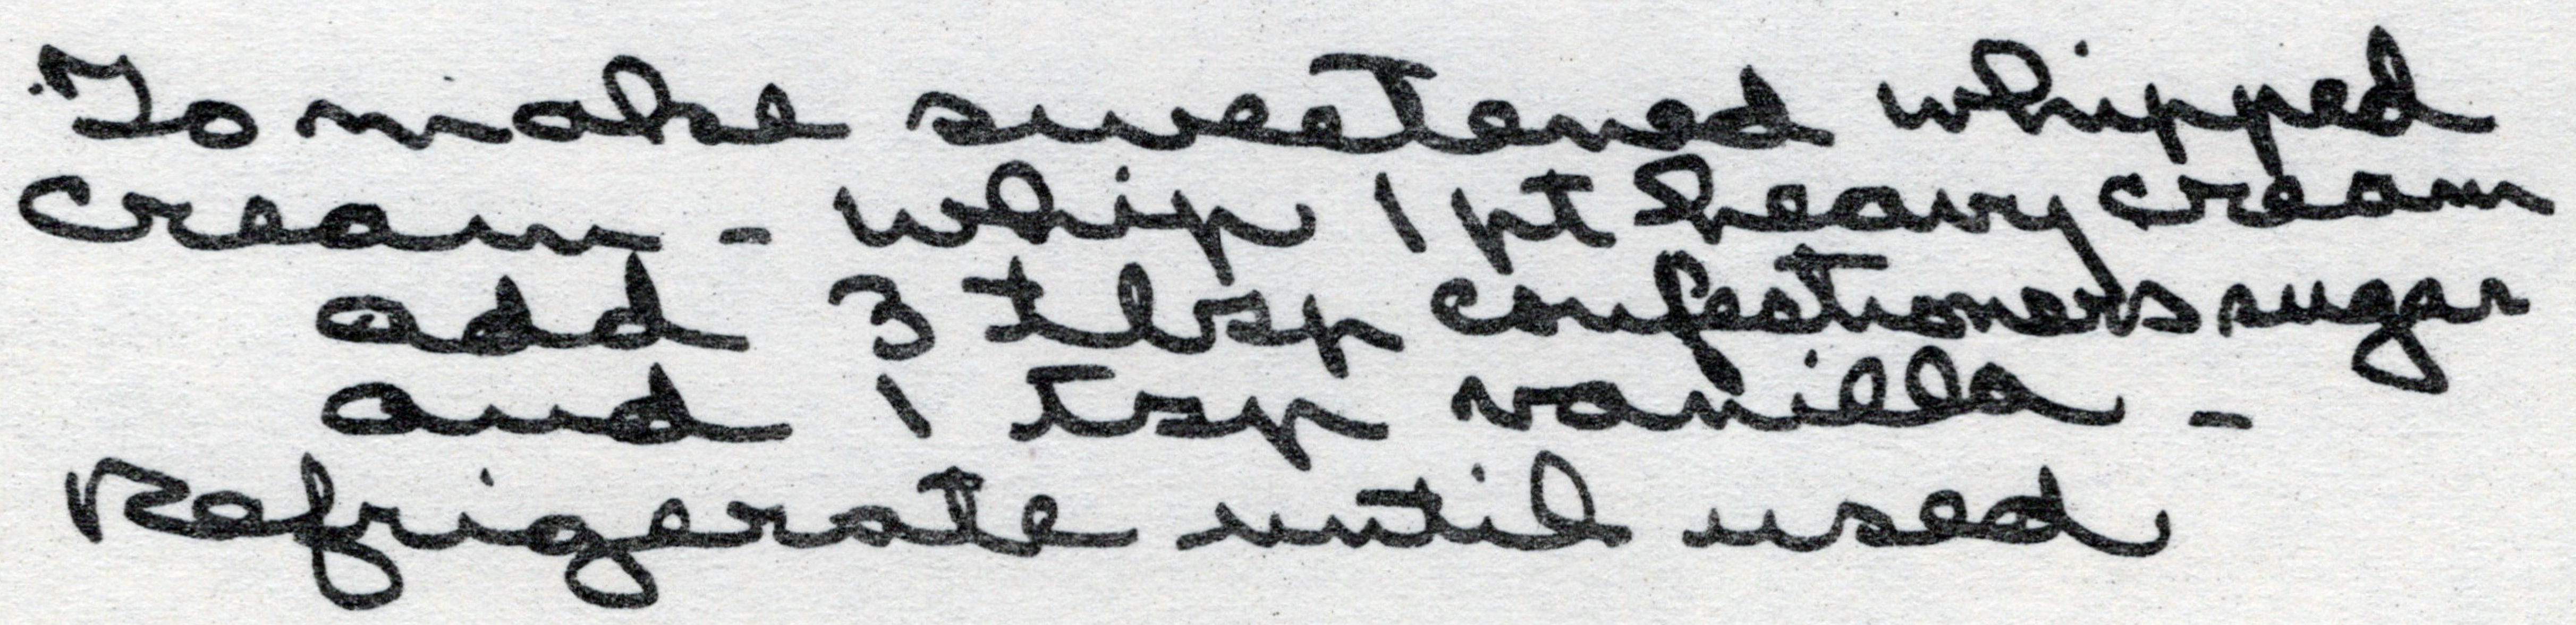 To make sweetened whipped
cream - whip 1 pt heavy cream
add 3 tlbsp confectioners sugar
and 1 tsp vanilla -
Refrigerate until used